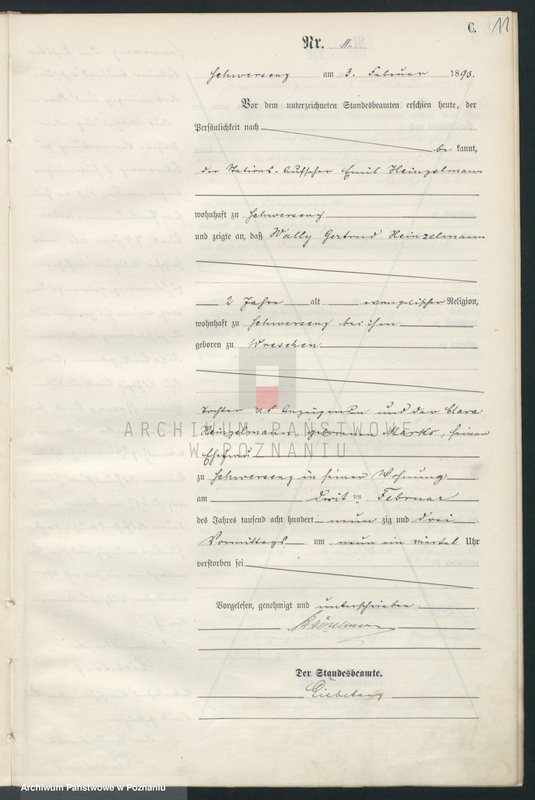 C. 11
Nr. 11.
Schwersenz am 3. Februar 1893.
Vor dem unterzeichneten Standesbeamten erschien heute, der
Persönlichkeit nach
be kannt,
der Stations-Aufseher Emil Heinzelmann
wohnhaft zu Schwersenz
und zeigte an, daß Wally Gertrud Heinzelmann
2 Jahre alt evangelischer Religion,
wohnhaft zu Schwersenz bei ihm
geboren zu Wreschen
Tochter des Anzeigenden und der Clara
Heinzelmann geborenen Marks, seiner
Ehefrau
zu Schwersenz in seiner Wohnung
am dritten Februar
des Jahres tausend acht hundert neunzig und drei
Vormittags um neun ein viertel Uhr
verstorben sei
Vorgelesen, genehmigt und unterschrieben
Heinzelmann
Der Standesbeamte.
ARCHIWUM PAŃSTWOWE
W POZNANIU
Archiwum Państwowe w Poznaniu